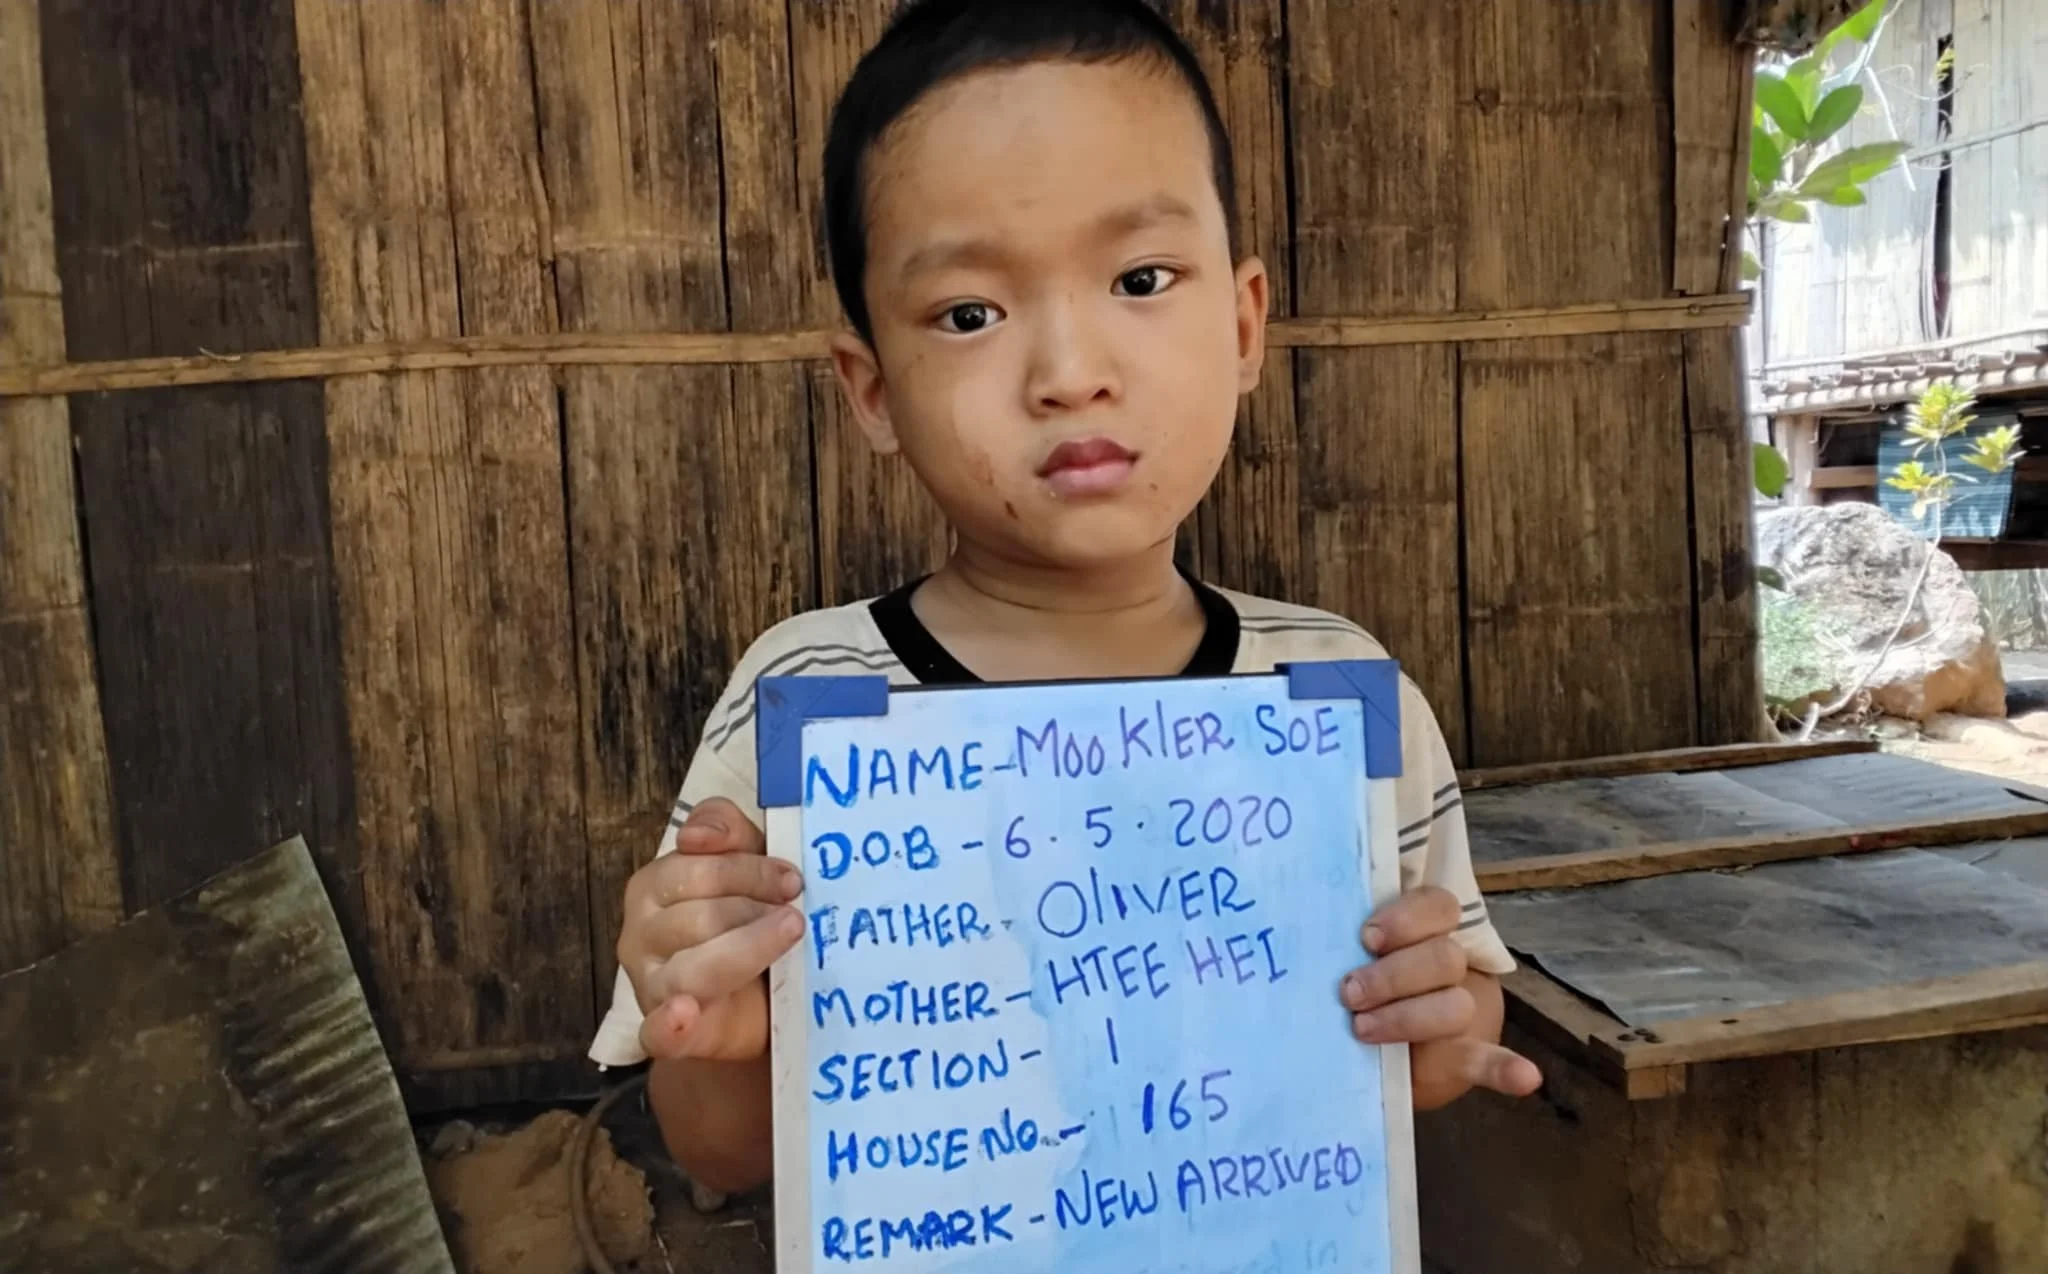 NAME - MOO KLER SOE
D.O.B - 6.5.2020
FATHER - OLIVER
MOTHER - HTEE HEI
SECTION - 1
HOUSE NO. - 165
REMARK - NEW ARRIVED